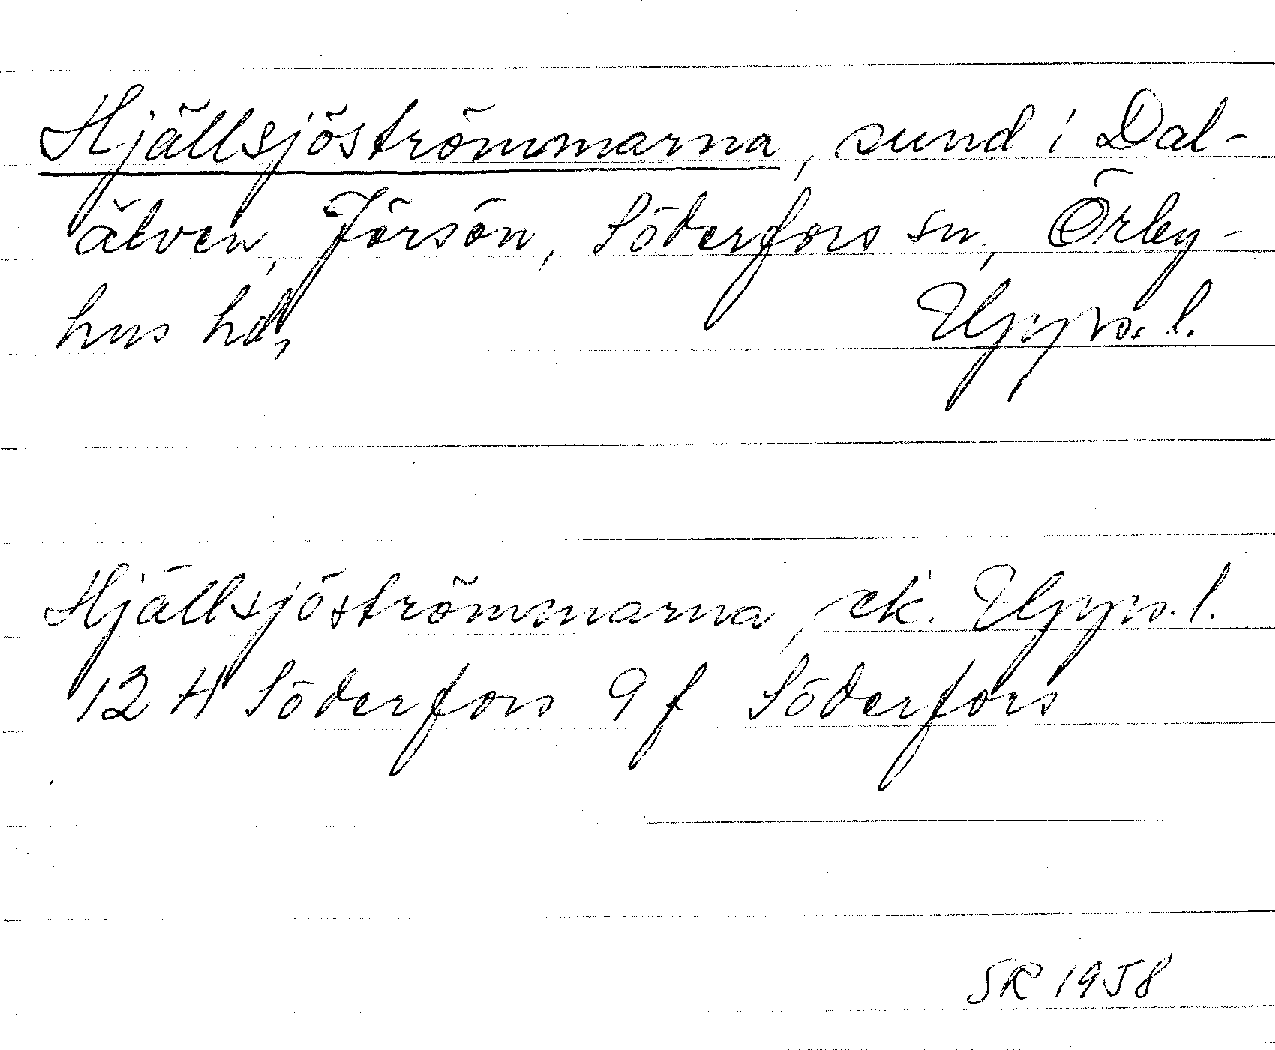 Hjällsjöströmmarna, sund i Dal-
älven, Jörsön, Söderfors sn, Örby-
hus hd, Upps. l.
Hjällsjöströmmarna, ek. Upps. l.
12 H Söderfors 9 f Söderfors
SR 1958